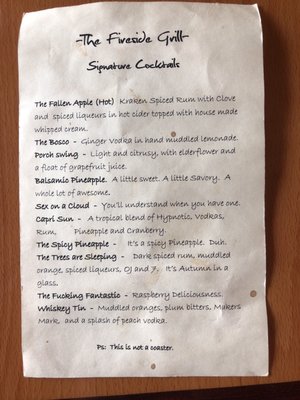 -The Fireside Grill-
Signature Cocktails
The Fallen Apple (Hot) Kraken Spiced Rum with Clove
and spiced liqueurs in hot cider topped with house made
whipped cream.
The Bosco - Ginger Vodka in hand muddled lemonade.
Porch swing - Light and citrusy, with elderflower and
a float of grapefruit juice.
Balsamic Pineapple. A little sweet. A little Savory. A
whole lot of awesome.
Sex on a Cloud - You'll understand when you have one.
Capri Sun - A tropical blend of Hypnotic, Vodkas,
Rum, Pineapple and Cranberry.
The Spicy Pineapple - It's a spicy Pineapple. Duh.
The Trees are Sleeping - Dark spiced rum, muddled
orange, spiced liqueurs, OJ and 7. It's Autumn in a
glass.
The Fucking Fantastic - Raspberry Deliciousness.
Whiskey Tin - Muddled oranges, plum bitters, Makers
Mark, and a splash of peach vodka.
Ps: This is not a coaster.